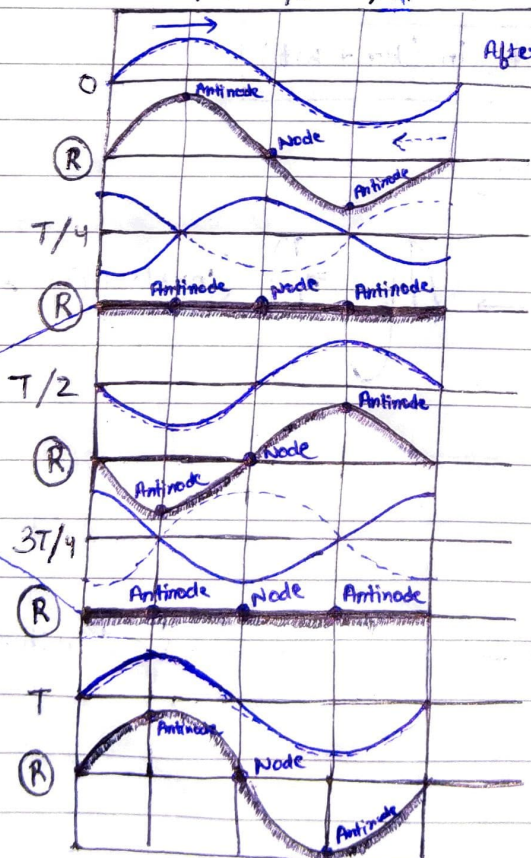 Afte
O
Antinode
R
Node
Antinode
T/4
Antinode Node Antinode
R
T/2
Antinode
R
Node
Antinode
3T/4
Antinode Node Antinode
R
T
Antinode
R
Node
Antinode